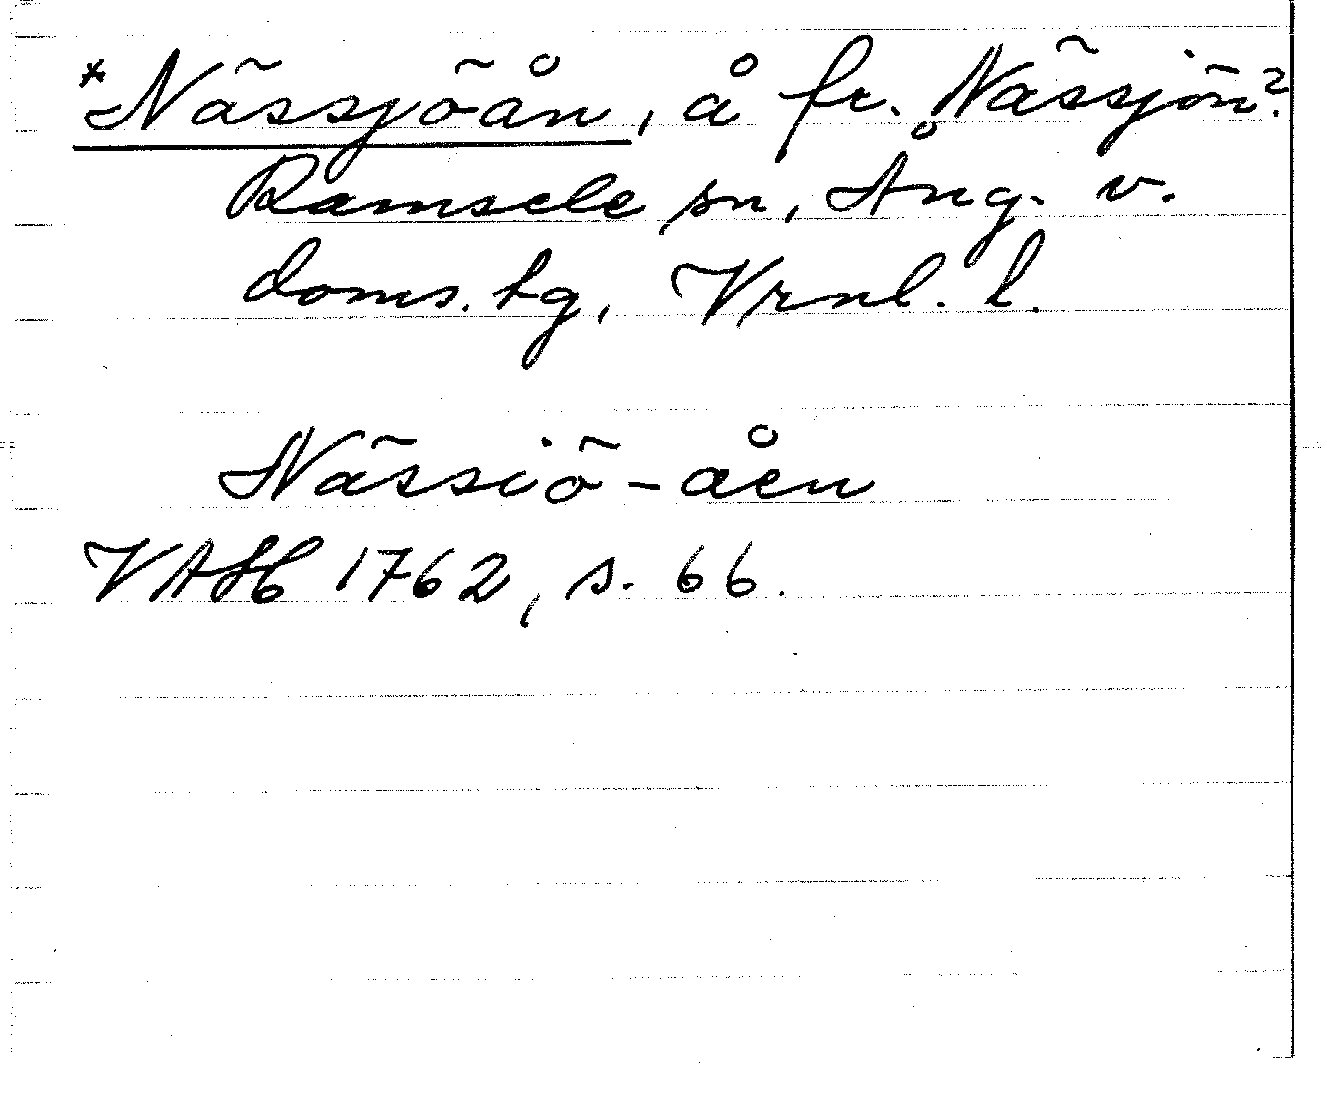 *Nässjöån, å fr. Nässjön?
Ramsele sn, Ång. v.
doms. tg, Vrnl. l.
Nässiö-åen
VAH 1762, s. 66.